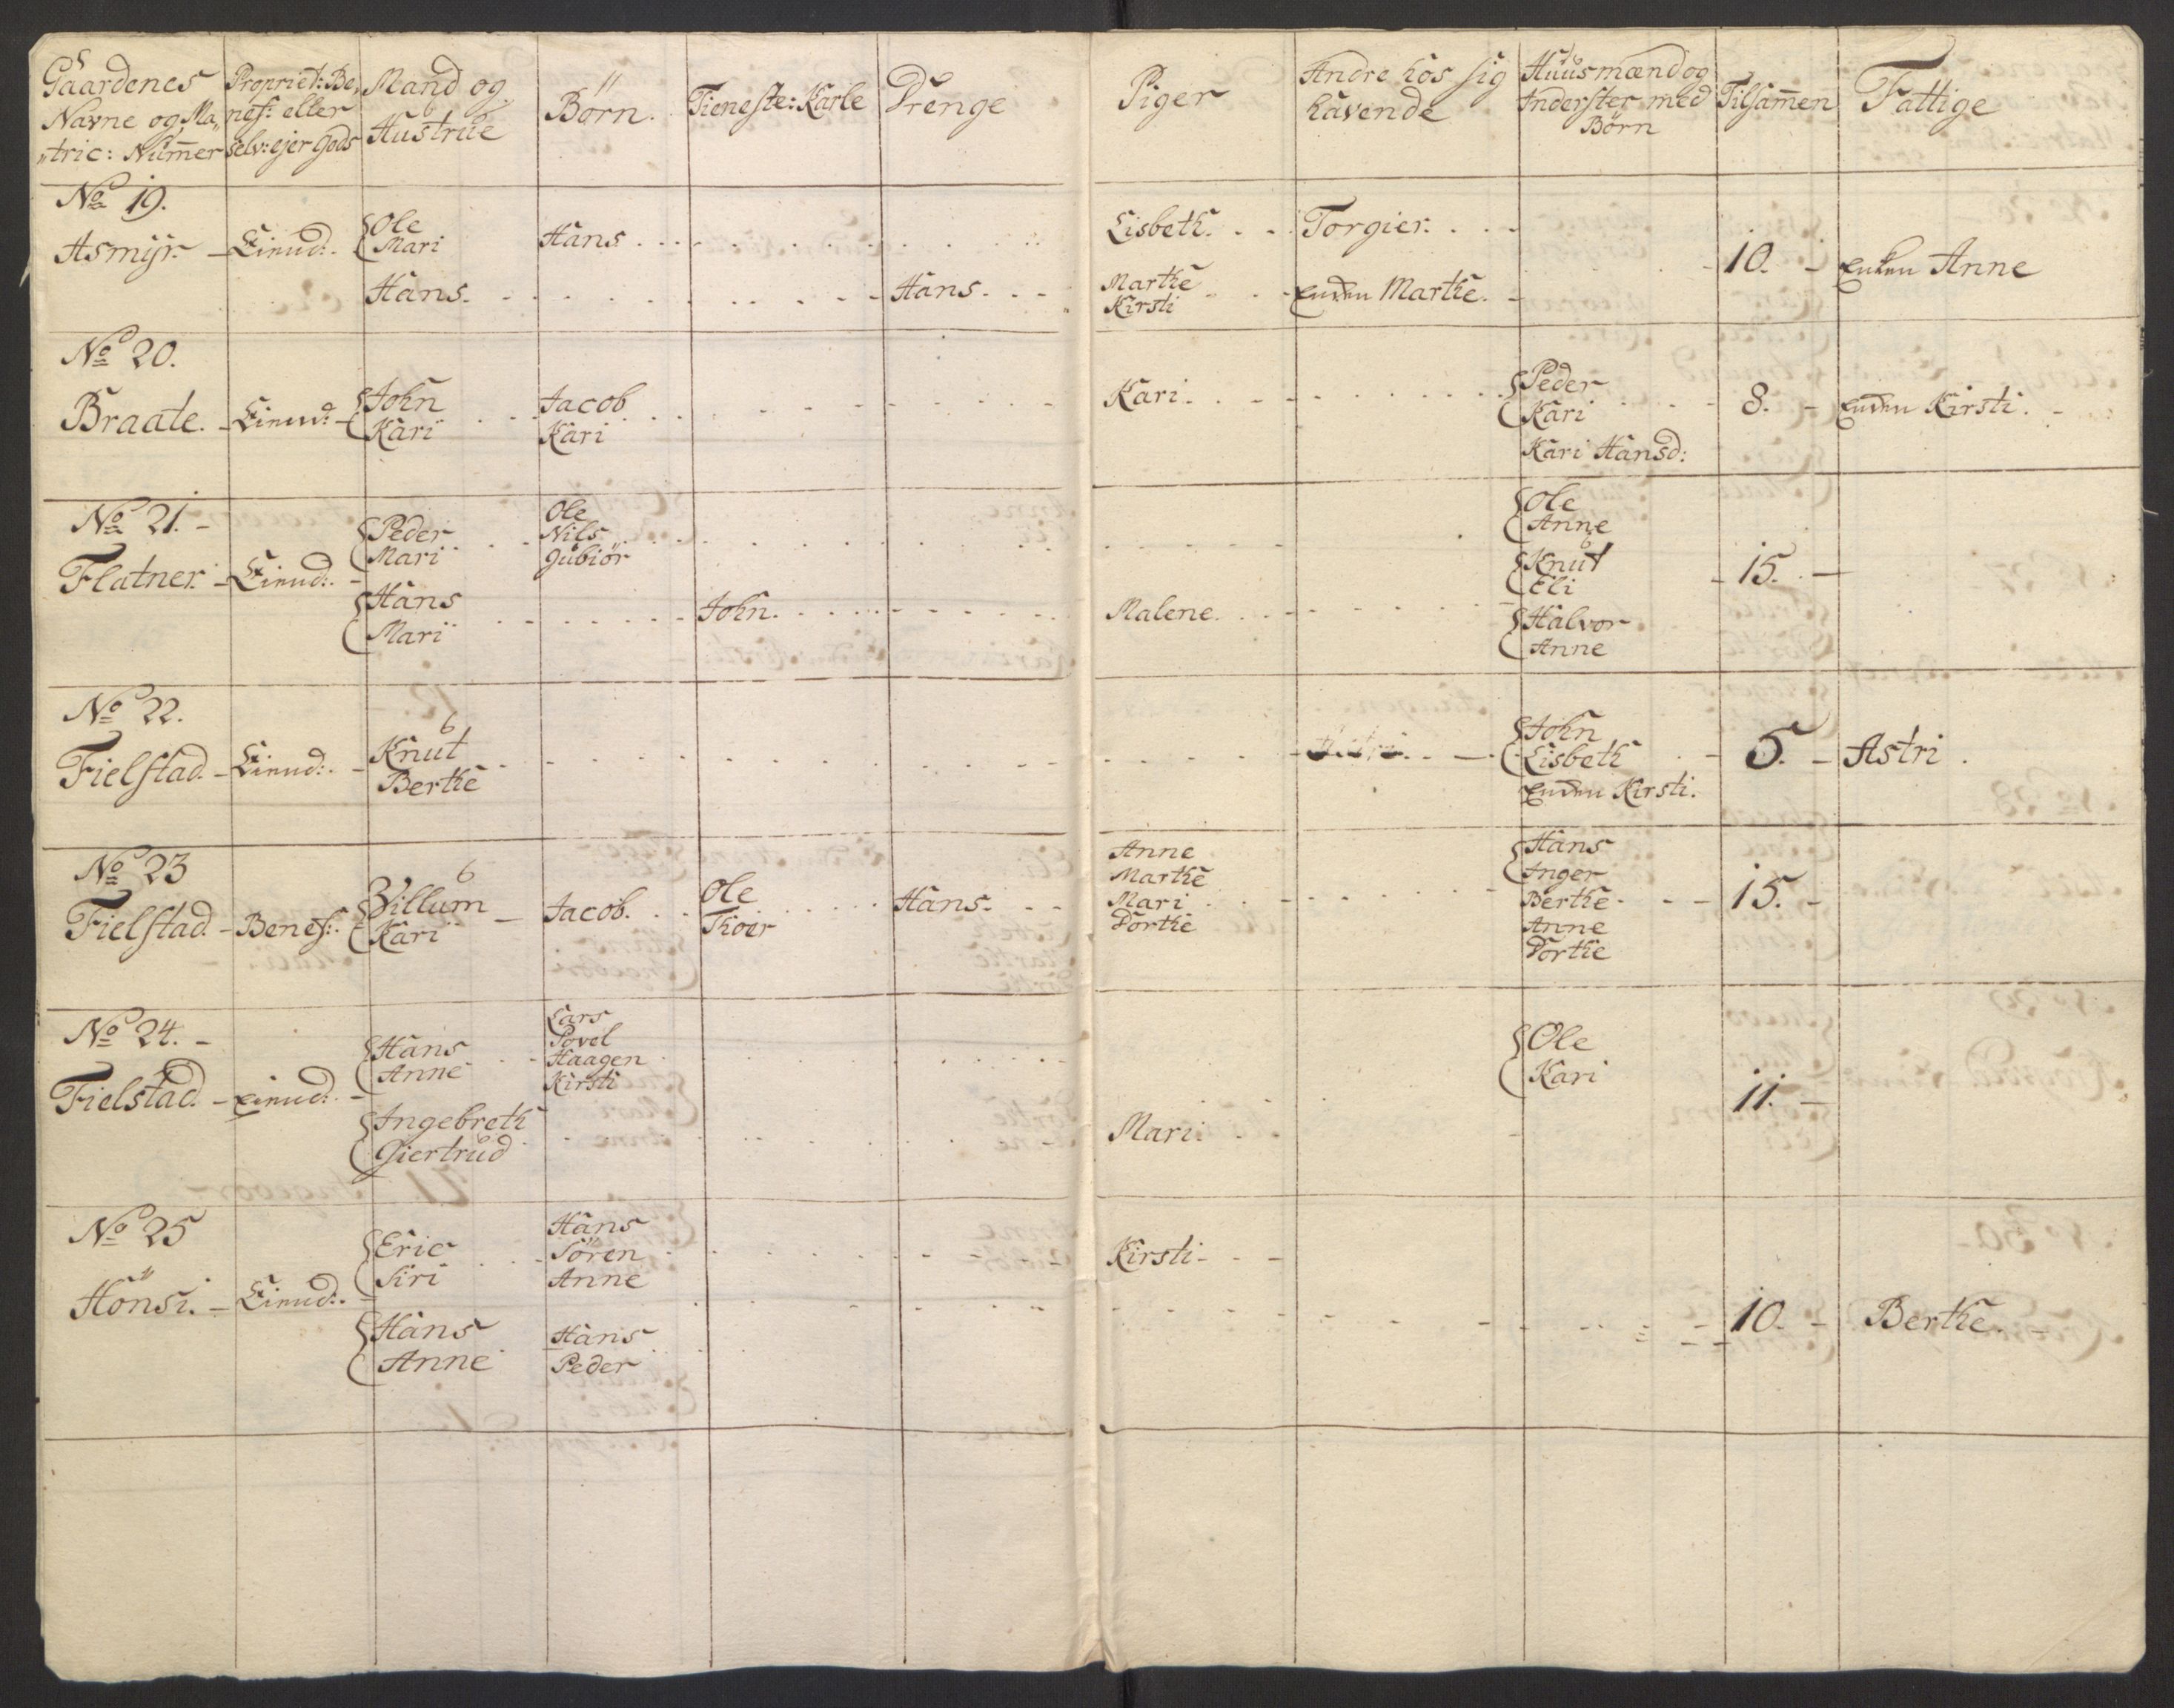 Gaardenes
Navne og Ma„
„tric: Nummer
Propriet: Be„
nef: eller
selv: ejer Gods
Mand og
Hustrue
Börn.
Tieneste: Karle
Drenge
Piger
Andre hos sig
havende
Huusmænd og
Inderster med
Börn
Tilsamen
Fattige
No 19.
Asmyr.
Ole
Mari
Hans
Lisbeth.
Torgier.
Hans.
Hans.
Marthe
Kirsti
Enken Marthe.
10.
Enken Anne
No 20.
Braate.
John
Kari
Jacob
Kari
Kari
Peder
Kari
Kari Hansd:
8.
Enken Kirsti.
No 21.
Flatner.
Peder
Mari
Ole
Nils
Gubiör
Hans
Mari
John.
Malene.
Ole
Anne
Knut
Eli
Halvor
Anne
15.
No 22.
Fielstad.
Knut
Berthe
John
Lisbeth
Enken Kirsti.
5.
Astri.
No 23
Fielstad. Benef:
Villum
Kari
Jacob.
Ole
Thoer
Hans.
Anne
Marthe
Mari
Dorthe
Hans
Inger
Berthe
Anne
Dorthe
15.
No 24.
Fielstad.
Hans
Anne
Lars
Povel
Haagen
Kirsti
Ingebreth
Giertrud
Mari.
Ole
Kari
11.
No 25
Hönsi.
Eric
Siri
Hans
Sören
Anne
Kirsti
Hans
Anne
Hans
Peder
10.
Berthe.